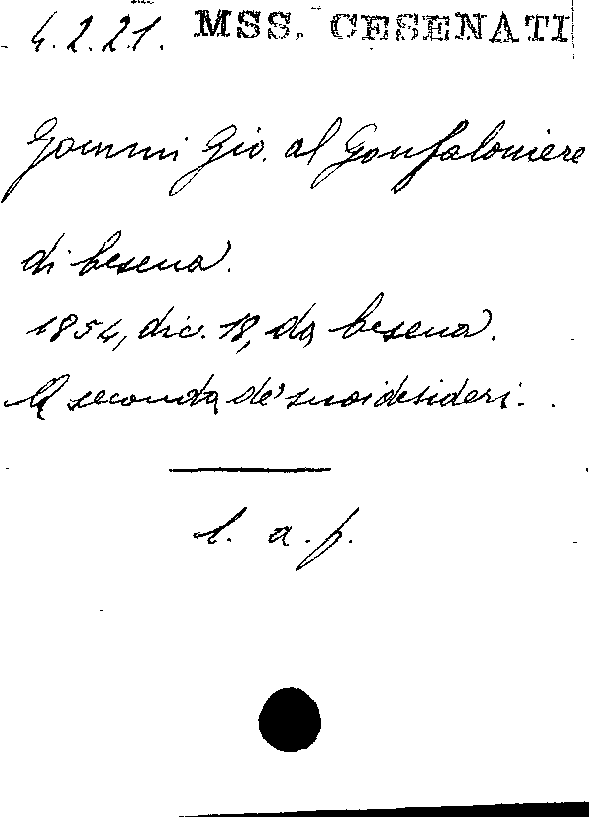 4.2.21. MSS. CESENATI
Gommi Gio. al Gonfaloniere
di Cesena.
1854, dic. 18, da Cesena.
A seconda de' suoi desideri..
l. a. f.